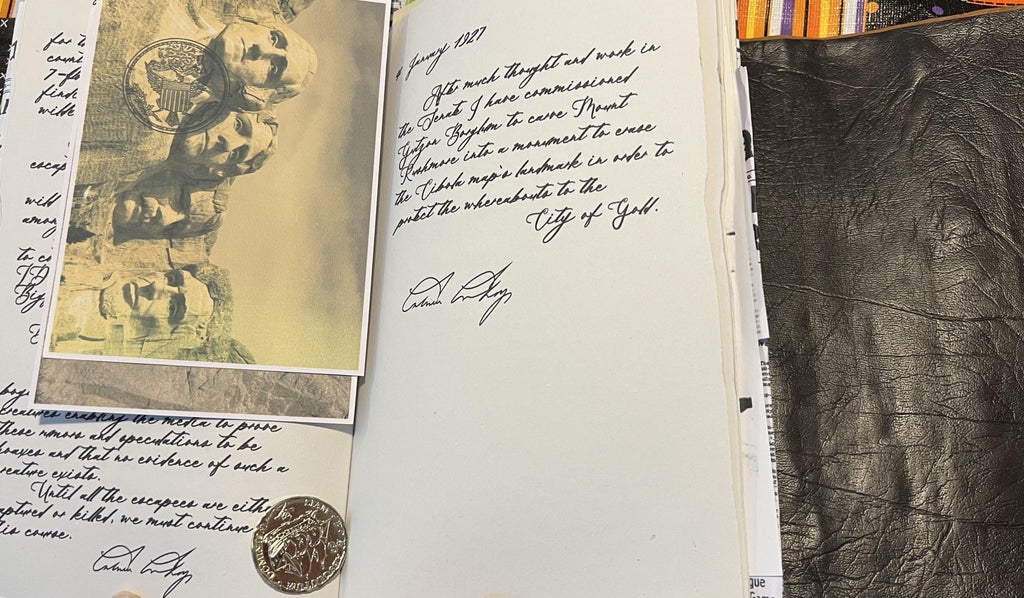 will
to co
reatures enabling the media to prove
these rumors and speculations to be
hoaxes and that no evidence of such a
reature exists.
Until all the escapees are eith
aptured or killed, we must continue
his course.
January 1927
After much thought and work in
the Senate I have commissioned
Gutzon Borglum to carve Mount
Rushmore into a monument to erase
the Cibola map's landmark in order to
protect the whereabouts to the
City of Gold.
gue